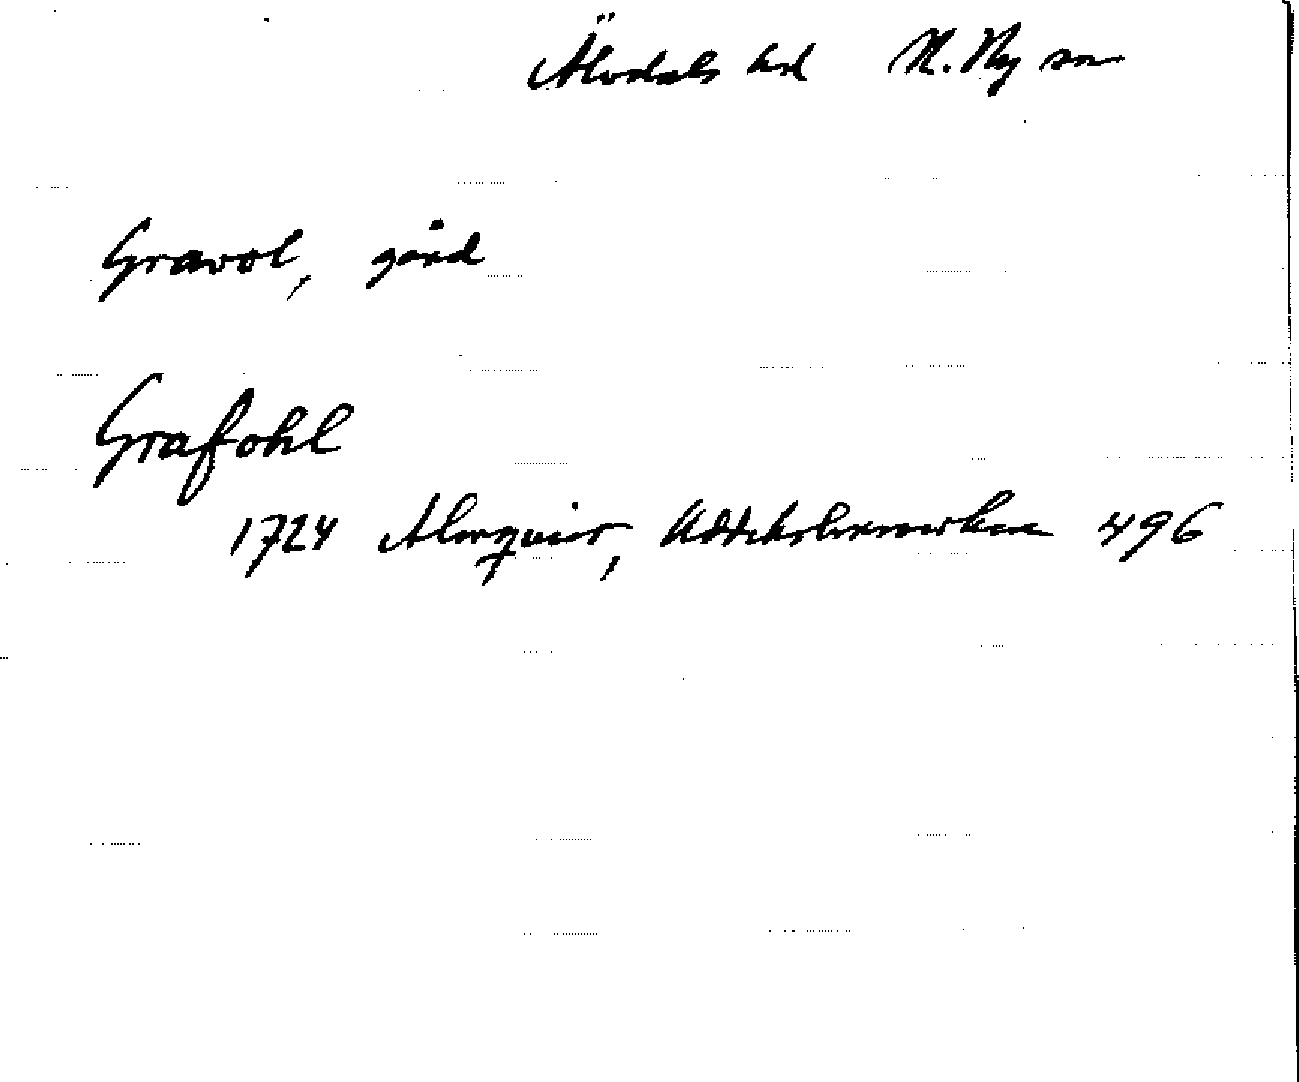 Älvdals hd N. Ny sn
Gravol, gård
Grafohl
1724 Almquist, 496